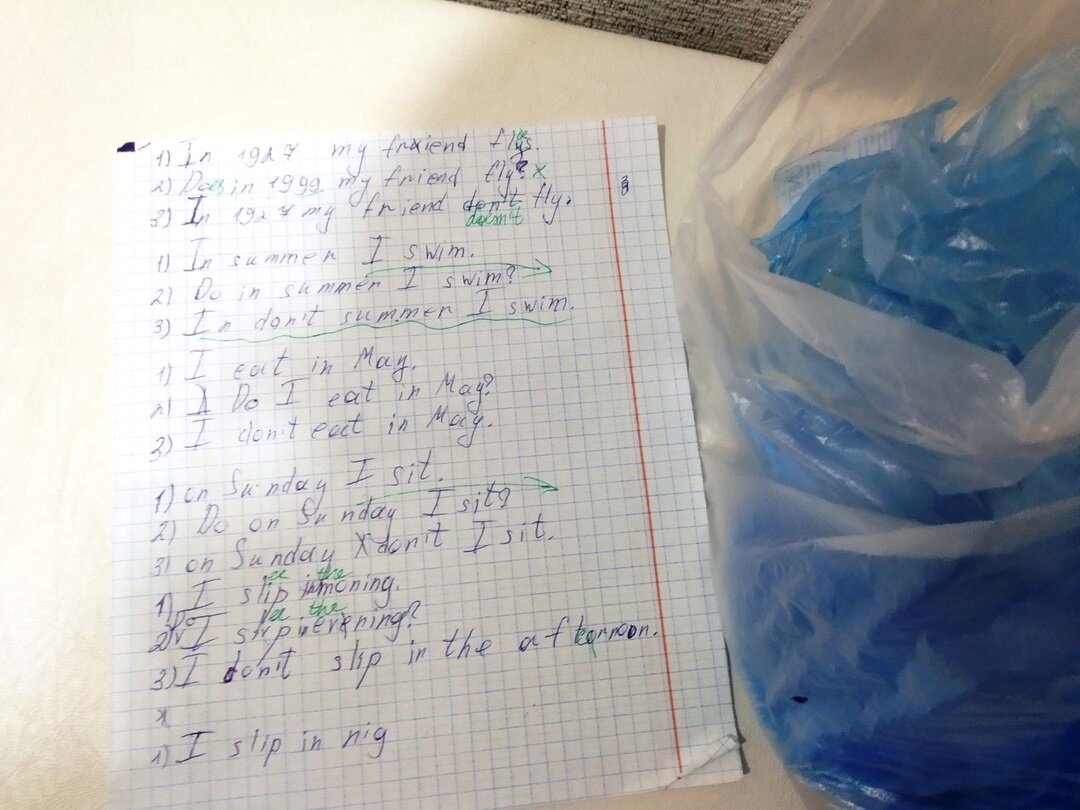 1) In 1927 my friend flys.
2) Does in 1999 my friend fly? x
3) In 1927 my friend don't fly.
doesn't
1) In summer I swim.
2) Do in summer I swim?
3) In don't summer I swim.
1) I eat in May.
2) Do I eat in May?
3) I don't eat in May.
1) on Sunday I sit.
2) Do on Sunday I sit?
3) on Sunday don't I sit.
the
1) I slip moning.
the
2) Do I slip in evening?
3) I don't slip in the afternoon.
1) I slip in nig